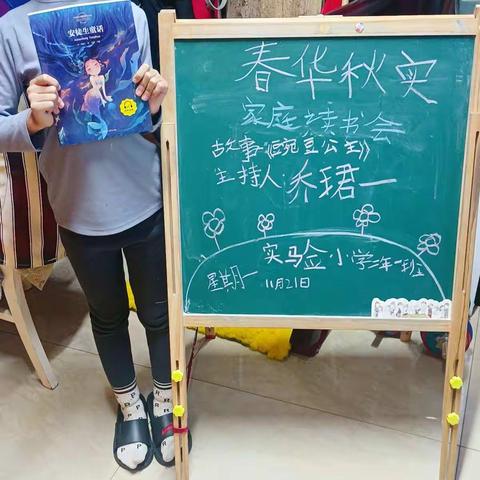 安徒生童话
春华秋实
家庭读书会
故事《豌豆公主》
主持人:乔珺一
实验小学三年一班
星期一 11月21日